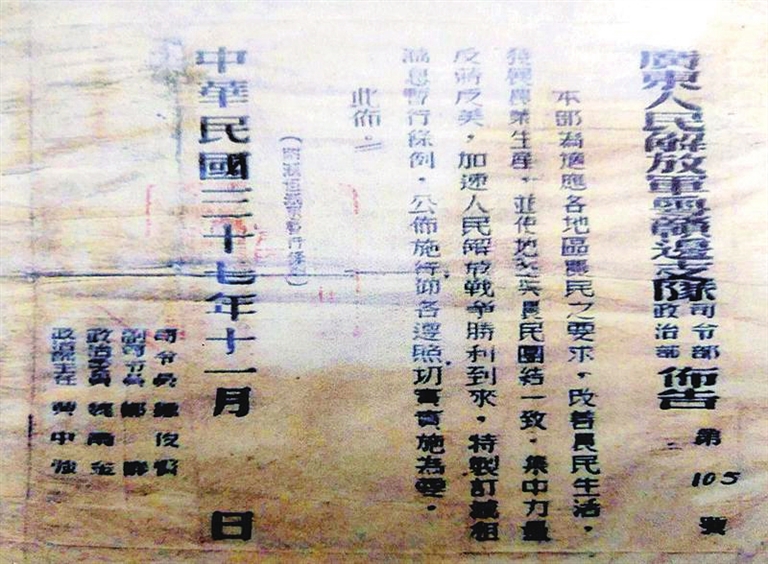 廣東人民解放軍粵贛邊支隊司令部政治部佈告
第105號
本部為適應各地區農民之要求，改善農民生活，
發展農業生產，並使地主與農民團結一致，集中力量
反蔣反美，加速人民解放戰爭勝利到來，特製訂減租
減息暫行條例，公佈施行仰各遵照切實實施為要。
此佈。
（附減租減息暫行條例）
中華民國三十七年十一月　日
司令員 鍾俊賢
副司令員 鄭
政治委員 魏南金
政治部主任 黃中強